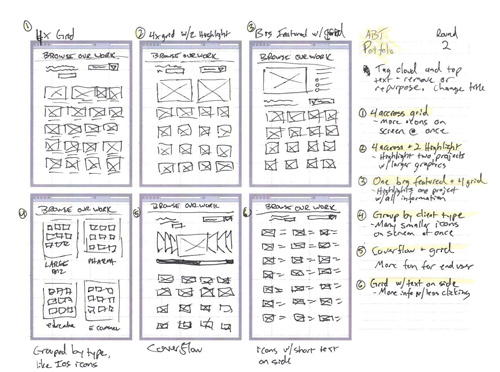 ① 4x Grid
BROWSE OUR WORK
② 4x grid w/2 Highlight
BROWSE OUR WORK
③ Big Featured w/grid
BROWSE OUR WORK
④
BROWSE OUR WORK
LARGE
BIZ
PHARMA
educate
E commer
Grouped by type,
like Ios icons
⑤
BROWSE OUR WORK
Coverflow
⑥
BROWSE OUR WORK
icons w/short text
on side
Round
2
Tag cloud and top
text - remove or
repurpose, change title
① 4 accross grid
- more icons on
screen @ once
② 4 across + 2 Highlight
- Highlight two projects
w/larger graphics
③ One big featured + 4 grid
- Highlights one project
w/all information
④ Group by client type
- Many smaller icons
on screen at once
⑤ Coverflow + grid
More fun for end user
⑥ Grid w/text on side
- More info w/less clicking